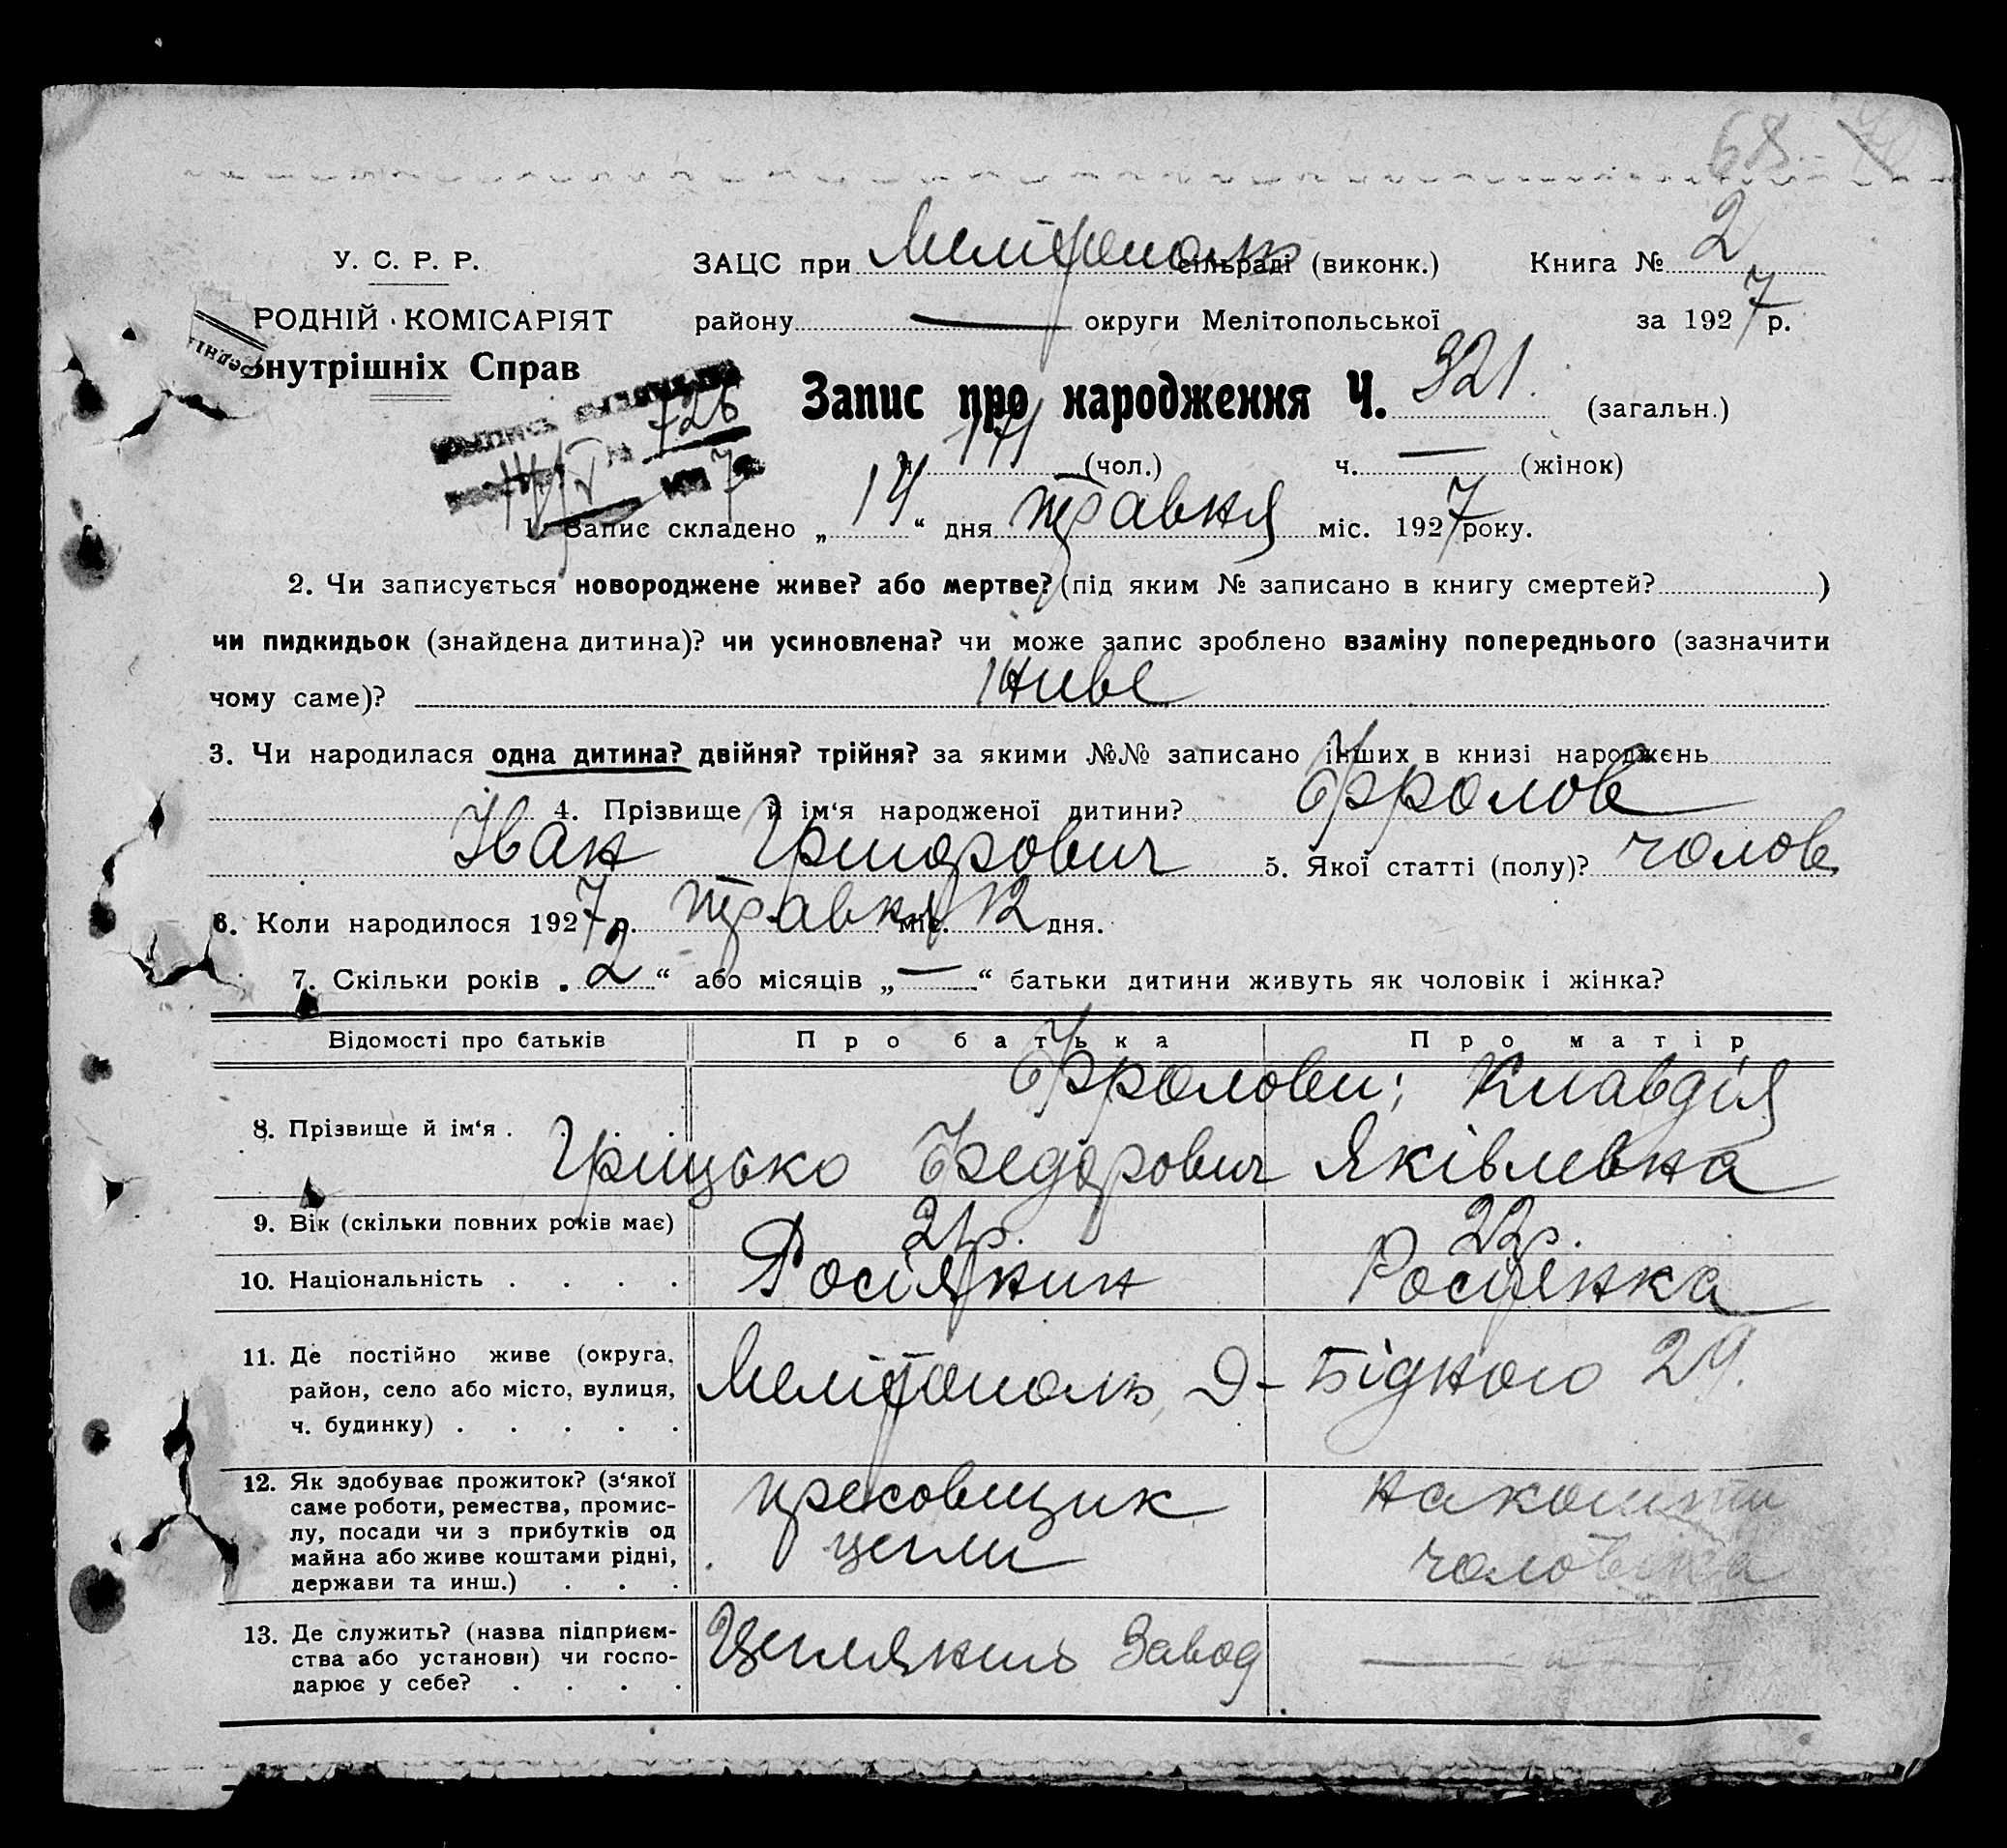 68
У. С. Р. Р.
ЗАЦС при Мелітополь сільраді (виконк.) Книга № 2
РОДНІЙ КОМІСАРІЯТ
району — округи Мелітопольської за 1927 р.
Внутрішніх Справ
Запис про народження Ч. 321. (загальн.)
726
ч. 171 (чол.) ч. — (жінок)
14/V № 7
1. Запис складено „14“ дня травня міс. 1927 року.
2. Чи записується новороджене живе? або мертве? (під яким № записано в книгу смертей? )
чи пидкидьок (знайдена дитина)? чи усиновлена? чи може запис зроблено взаміну попереднього (зазначити
чому саме)? живе
3. Чи народилася одна дитина? двійня? трійня? за якими №№ записано інших в книзі народжень
4. Прізвище й ім‘я народженої дитини? Фролов
Іван Григорович 5. Якої статті (полу)? чолов
6. Коли народилося 1927 р. травня міс. 12 дня.
7. Скільки років „2“ або місяців „—“ батьки дитини живуть як чоловік і жінка?
Відомості про батьків Про батька Про матір
Фролови; Клавдія
8. Прізвище й ім‘я . Грицько Федорович Яківлевна
9. Вік (скільки повних років має) 21р. 22р.
10. Національність . . . . Росіянин Росіянка
11. Де постійно живе (округа,
район, село або місто, вулиця,
ч. будинку) . . . . . Мелітополь, Д-Бідного 29.
12. Як здобуває прожиток? (з‘якої
саме роботи, ремества, промис-
лу, посади чи з прибутків од
майна або живе коштами рідні,
держави та инш.) . . . пресовщик
цегли
на кошти
чоловіка
13. Де служить? (назва підприєм-
ства або установи) чи госпо-
дарює у себе? . . . . Цегляний Завод — „ —